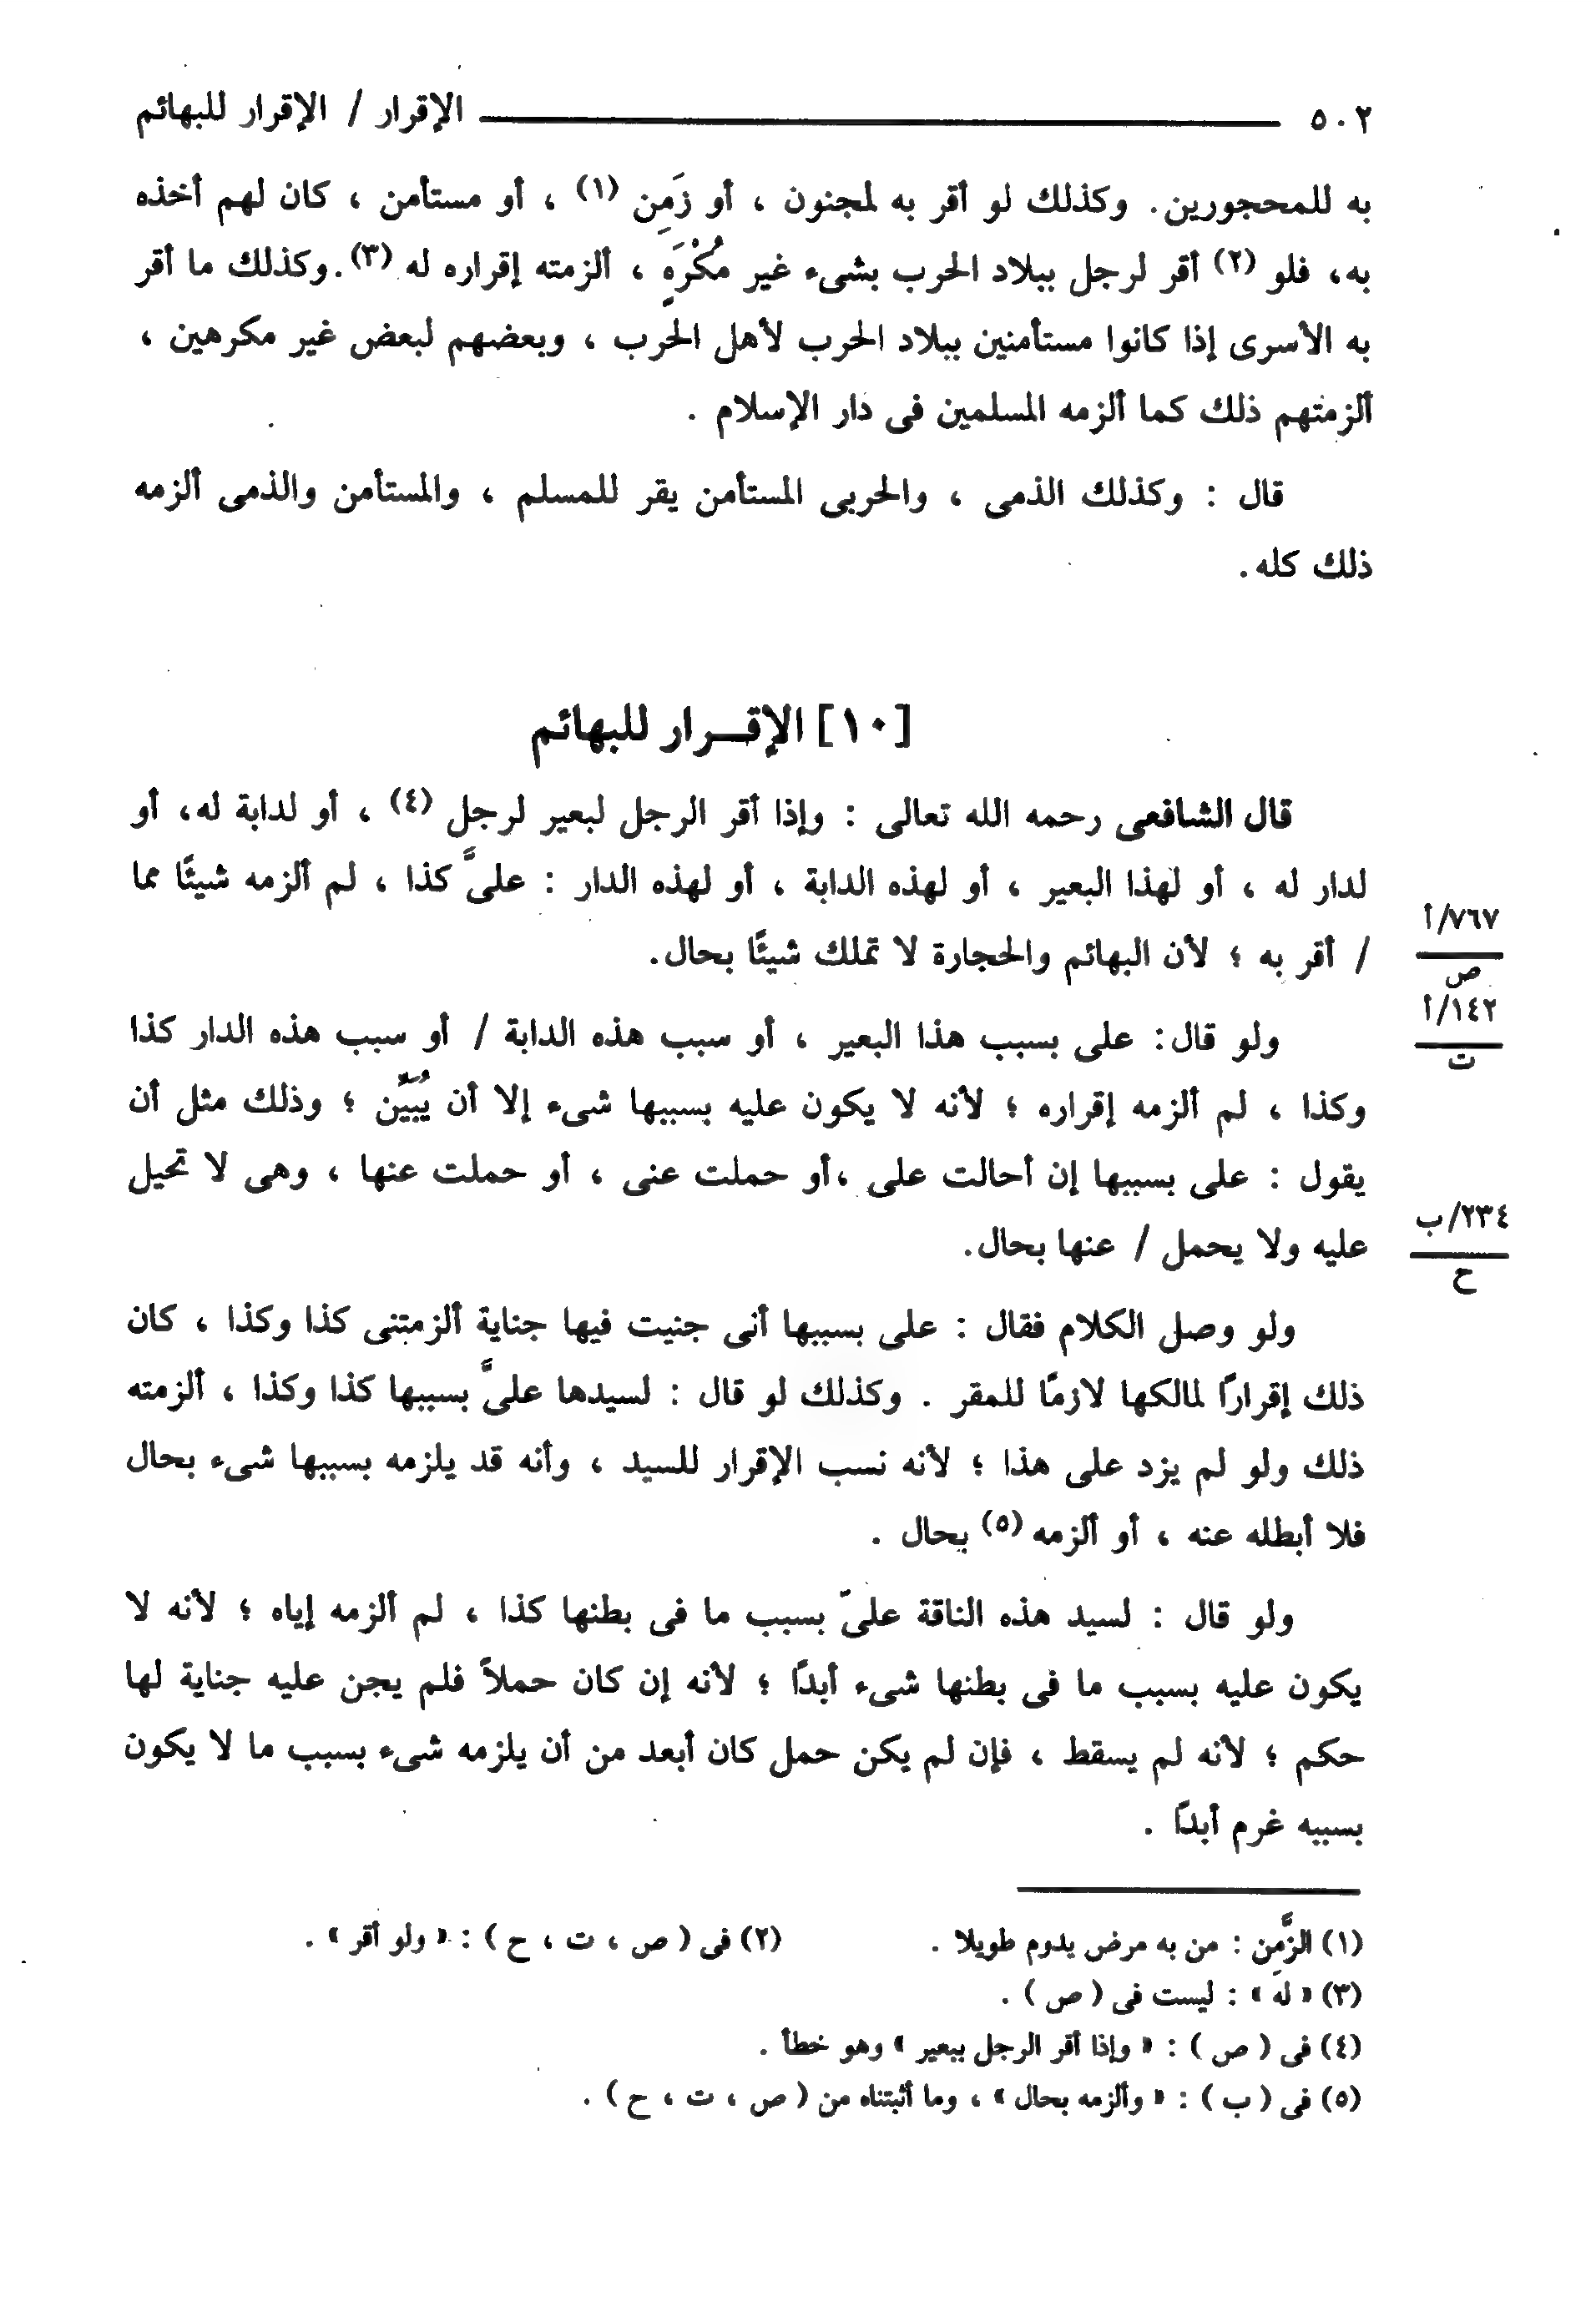 ٥٠٢ الإقرار / الإقرار للبهائم
به للمحجورين. وكذلك لو أقر به لمجنون ، أو زَمِن (١) ، أو مستأمن ، كان لهم أخذه
به، فلو (٢) أقر لرجل ببلاد الحرب بشىء غير مُكْرَهٍ ، ألزمته إقراره له (٣) .وكذلك ما أقر
به الأسرى إذا كانوا مستأمنين ببلاد الحرب لأهل الحرب ، وبعضهم لبعض غير مكرهين ،
ألزمتهم ذلك كما ألزمه المسلمين فى دار الإسلام .
قال : وكذلك الذمى ، والحربى المستأمن يقر للمسلم ، والمستأمن والذمى ألزمه
ذلك كله.
[١٠] الإقـــرار للبهائم
قال الشافعى رحمه الله تعالى : وإذا أقر الرجل لبعير لرجل (٤) ، أو لدابة له، أو
لدار له ، أو لهذا البعير ، أو لهذه الدابة ، أو لهذه الدار : علىَّ كذا ، لم ألزمه شيئًا مما
/ أقر به ؛ لأن البهائم والحجارة لا تملك شيئًا بحال.
٧٦٧/أ
ص
ولو قال: على بسبب هذا البعير ، أو سبب هذه الدابة / أو سبب هذه الدار كذا
١٤٢/أ
ت
وكذا ، لم ألزمه إقراره ؛ لأنه لا يكون عليه بسببها شىء إلا أن يُبَيِّن ؛ وذلك مثل أن
يقول : على بسببها إن أحالت على ،أو حملت عنى ، أو حملت عنها ، وهى لا تحيل
عليه ولا يحمل / عنها بحال.
٢٣٤/ب
ح
ولو وصل الكلام فقال : على بسببها أنى جنيت فيها جناية ألزمتنى كذا وكذا ، كان
ذلك إقرارًا لمالكها لازمًا للمقر . وكذلك لو قال : لسيدها علىَّ بسببها كذا وكذا ، ألزمته
ذلك ولو لم يزد على هذا ؛ لأنه نسب الإقرار للسيد ، وأنه قد يلزمه بسببها شىء بحال
فلا أبطله عنه ، أو ألزمه (٥) بحال .
ولو قال : لسيد هذه الناقة علىّ بسبب ما فى بطنها كذا ، لم ألزمه إياه ؛ لأنه لا
يكون عليه بسبب ما فى بطنها شىء أبدًا ؛ لأنه إن كان حملاً فلم يجن عليه جناية لها
حكم ؛ لأنه لم يسقط ، فإن لم يكن حمل كان أبعد من أن يلزمه شىء بسبب ما لا يكون
بسببه غرم أبدًا .
(١) الزَّمِن : من به مرض يدوم طويلا . (٢) فى ( ص ، ت ، ح ) : « ولو أقر » .
(٣) « له » : ليست فى ( ص ) .
(٤) فى ( ص ) : « وإذا أقر الرجل ببعير » وهو خطأ .
(٥) فى ( ب ) : « وألزمه بحال » ، وما أثبتناه من ( ص ، ت ، ح ) .